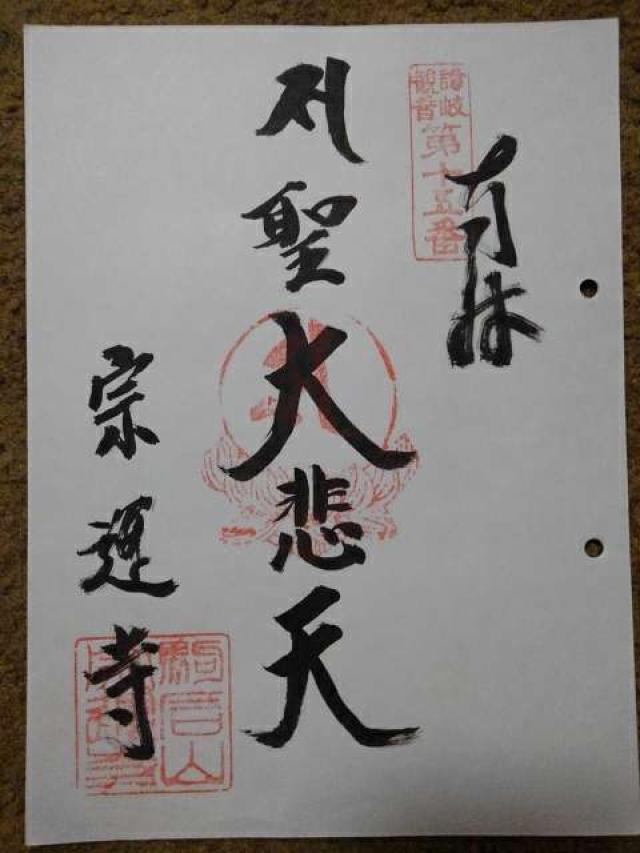 奉拝
讃岐
観音
第十五番
聖大悲天
宗運寺